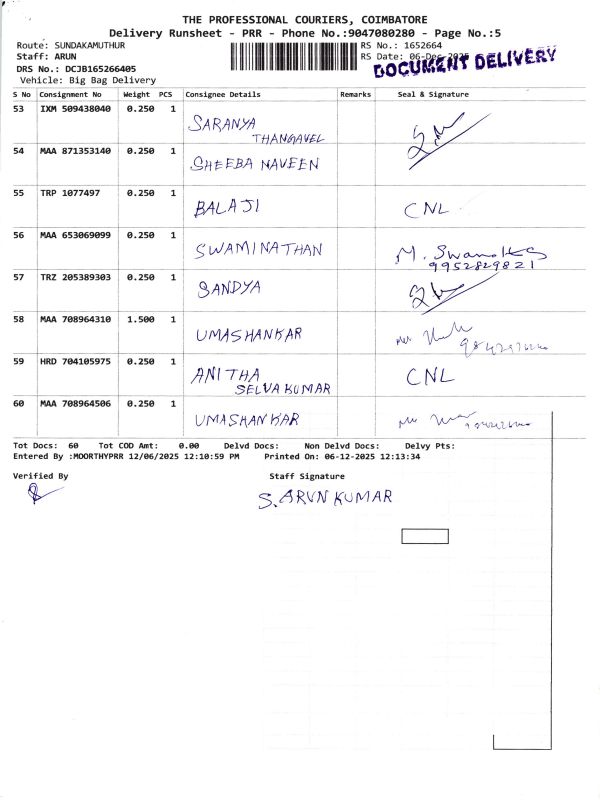 THE PROFESSIONAL COURIERS, COIMBATORE
Delivery Runsheet - PRR - Phone No.:9047080280 - Page No.:5
Route: SUNDAKAMUTHUR RS No.: 1652664
Staff: ARUN RS Date: 06-Dec-2025
DOCUMENT DELIVERY
DRS No.: DCJB165266405
Vehicle: Big Bag Delivery
S No Consignment No Weight PCS Consignee Details Remarks Seal & Signature
53 IXM 509438040 0.250 1 SARANYA
THANGAVEL
54 MAA 871353140 0.250 1 SHEEBA NAVEEN
55 TRP 1077497 0.250 1 BALAJI CNL
56 MAA 653069099 0.250 1 SWAMINATHAN M.
9952829821
57 TRZ 205389303 0.250 1 SANDYA
58 MAA 708964310 1.500 1 UMASHANKAR
59 HRD 704105975 0.250 1 ANITHA CNL
SELVAKUMAR
60 MAA 708964506 0.250 1 UMASHANKAR
Tot Docs: 60 Tot COD Amt: 0.00 Delvd Docs: Non Delvd Docs: Delvy Pts:
Entered By :MOORTHYPRR 12/06/2025 12:10:59 PM Printed On: 06-12-2025 12:13:34
Verified By Staff Signature
S. ARUN KUMAR